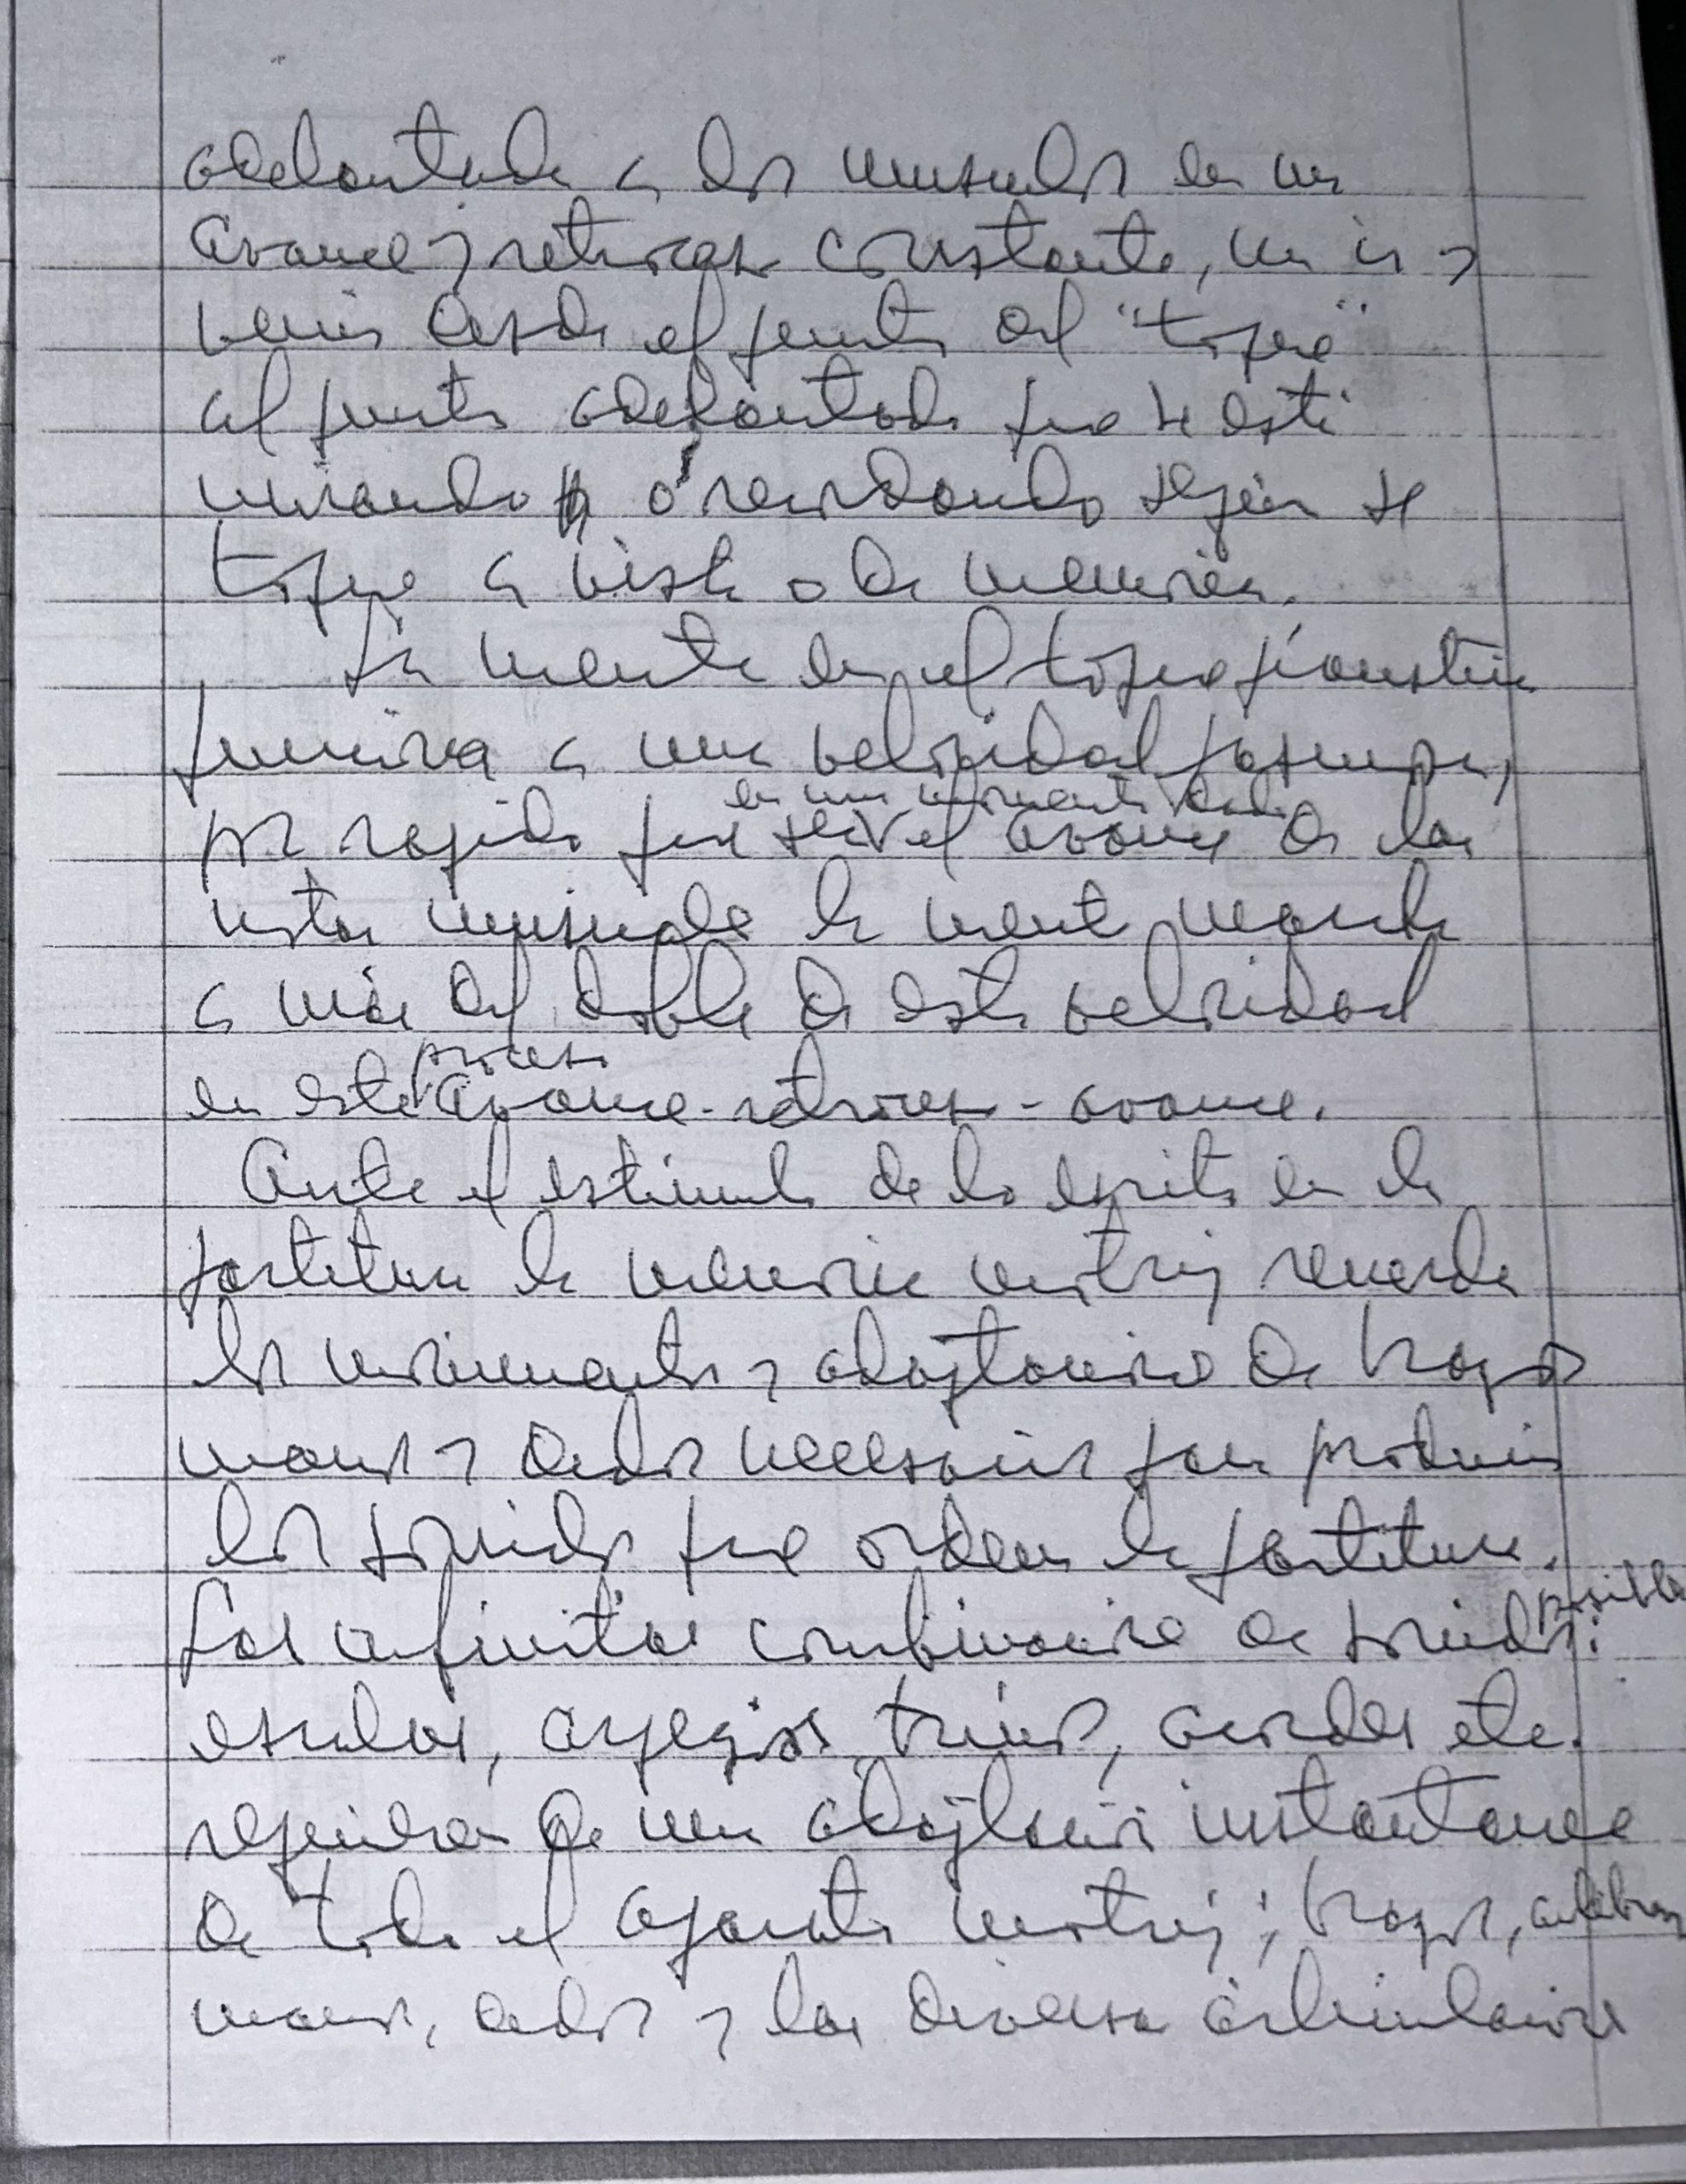 adelantada a los musculos en un
avance y retroceso constante, un ir y
venir desde el punto del "toque"
al punto adelantado que se está
mirando ó recordando según se
toque a vista o de memoria.
La mente en el toque pianístico
funciona a una velocidad pasmosa,
por rapido que sea en un momento dado el avance de las
notas musicales la mente manda
a más del doble de esta velocidad
en este proceso avance-retroceso-avance.
Ante el estimulo de lo escrito en la
partitura la memoria motriz recuerda
los movimientos y adaptaciones de brazos
manos y dedos necesarios para producir
los sonidos que ordena la partitura.
Las infinitas combinaciones de sonidos posibles:
escalas, arpegios, trinos, acordes etc.
requieren de una adaptación instantanea
de todo el aparato motriz; brazos, antebrazos
manos, dedos y las diversas articulaciones